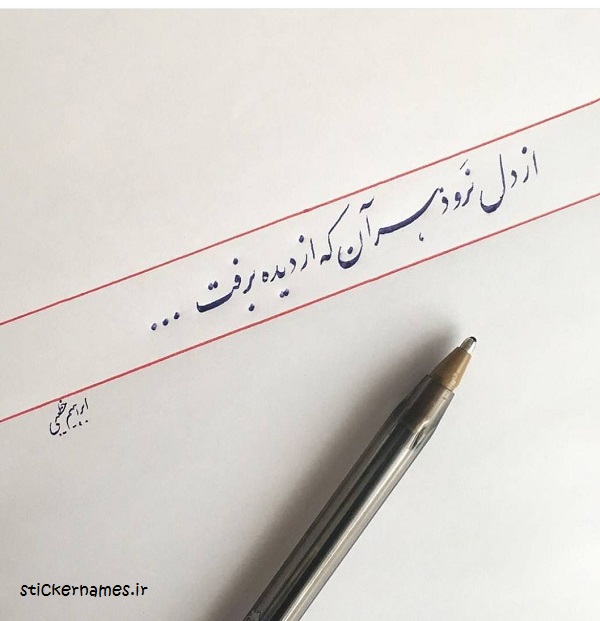 از دل نَرود هر آن که از دیده برفت ...
ابراهیم خطیبی
stickernames.ir